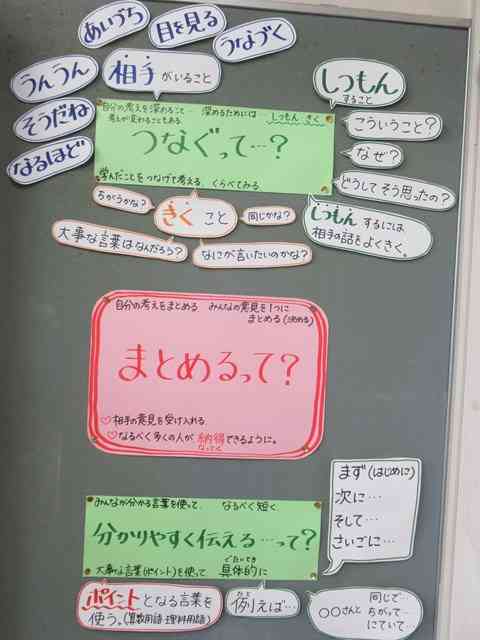 あいづち
目を見る
うなづく
うんうん
相手がいること
そうだね
なるほど
しつもん
すること
自分の考えを深めること… 深めるためには… しつもん きく
考えが変わることもある
つなぐって…?
学んだことをつなげて考える、くらべてみる
こういうこと?
なぜ?
どうしてそう思ったの?
ちがうかな?
きくこと
同じかな?
大事な言葉はなんだろう?
なにが言いたいのかな?
しつもんするには
相手の話をよくきく。
自分の考えをまとめる みんなの意見を1つに
まとめる(決める)
まとめるって?
♡相手の意見を受け入れる
♡なるべく多くの人が納得できるように。
なっとく
みんなが分かる言葉を使って、 なるべく短く、
分かりやすく伝える…って?
ぐたいてき
大事な言葉(ポイント)を使って 具体的に
まず(はじめに)
次に…
そして…
さいごに…
ポイントとなる言葉を
使う。(算数用語・理科用語)
たと
例えば…
同じで…
○○さんと ちがって…
にていて…